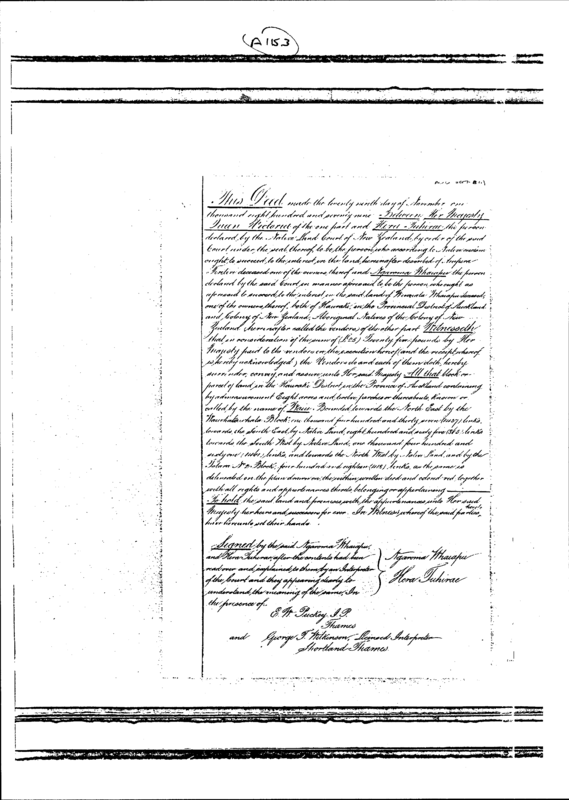 A1153
This Deed made the twenty ninth day of November one
thousand eight hundred and seventy nine Between Her Majesty
Queen Victoria of the one part and Hera Tuhirae the person
declared by the Native Land Court of New Zealand, by order of the said
Court under the seal thereof to be the person who according to Native custom
ought to succeed to the interest in the land hereinafter described of
deceased one of the owners thereof and Ngaroma Wharepu the person
declared by the said Court in manner aforesaid to be the person who ought as
aforesaid to succeed to the interest in the said land of Wharepu deceased,
one of the owners thereof, both of Hauraki, in the Provincial District of Auckland
and Colony of New Zealand, Aboriginal Natives of the Colony of New
Zealand (hereinafter called the vendors) of the other part Witnesseth
that in consideration of the sum of (£25) Twenty five pounds by Her
Majesty paid to the vendors on the execution hereof (and the receipt whereof
is hereby acknowledged) the Vendors do and each of them doth, hereby
surrender, convey and assure unto Her said Majesty All that block or
parcel of land in the Hauraki District, in the Province of Auckland containing
by admeasurement Eight acres and twelve perches or thereabouts, known or
called by the name of Bounded towards the North East by the
Block, one thousand four hundred and thirty seven (1437) links,
towards the South East by Native Land, eight hundred and sixty five (865) links
towards the South West by Native Land, one thousand four hundred and
links, and towards the North West by Native Land and by the
No 2 Block, four hundred and eighteen (418) links, as the same is
delineated on the plan drawn on the within written deed and edged red together
with all rights and appurtenances thereto belonging or appertaining
To hold the said land and premises with the appurtenances unto Her said
Majesty her heirs and successors for ever. In Witness whereof the said parties
have hereunto set their hands
Signed by the said Ngaroma Wharepu
and Hera Tuhirae, after the contents had been
read over and explained to them by an Interpreter
of the Court and they appearing clearly to
understand the meaning of the same, In
the presence of.
Ngaroma Wharepu
Hera Tuhirae
E. W. Puckey J.P.
Thames
and George T. Wilkinson, Licensed Interpreter
Shortland Thames